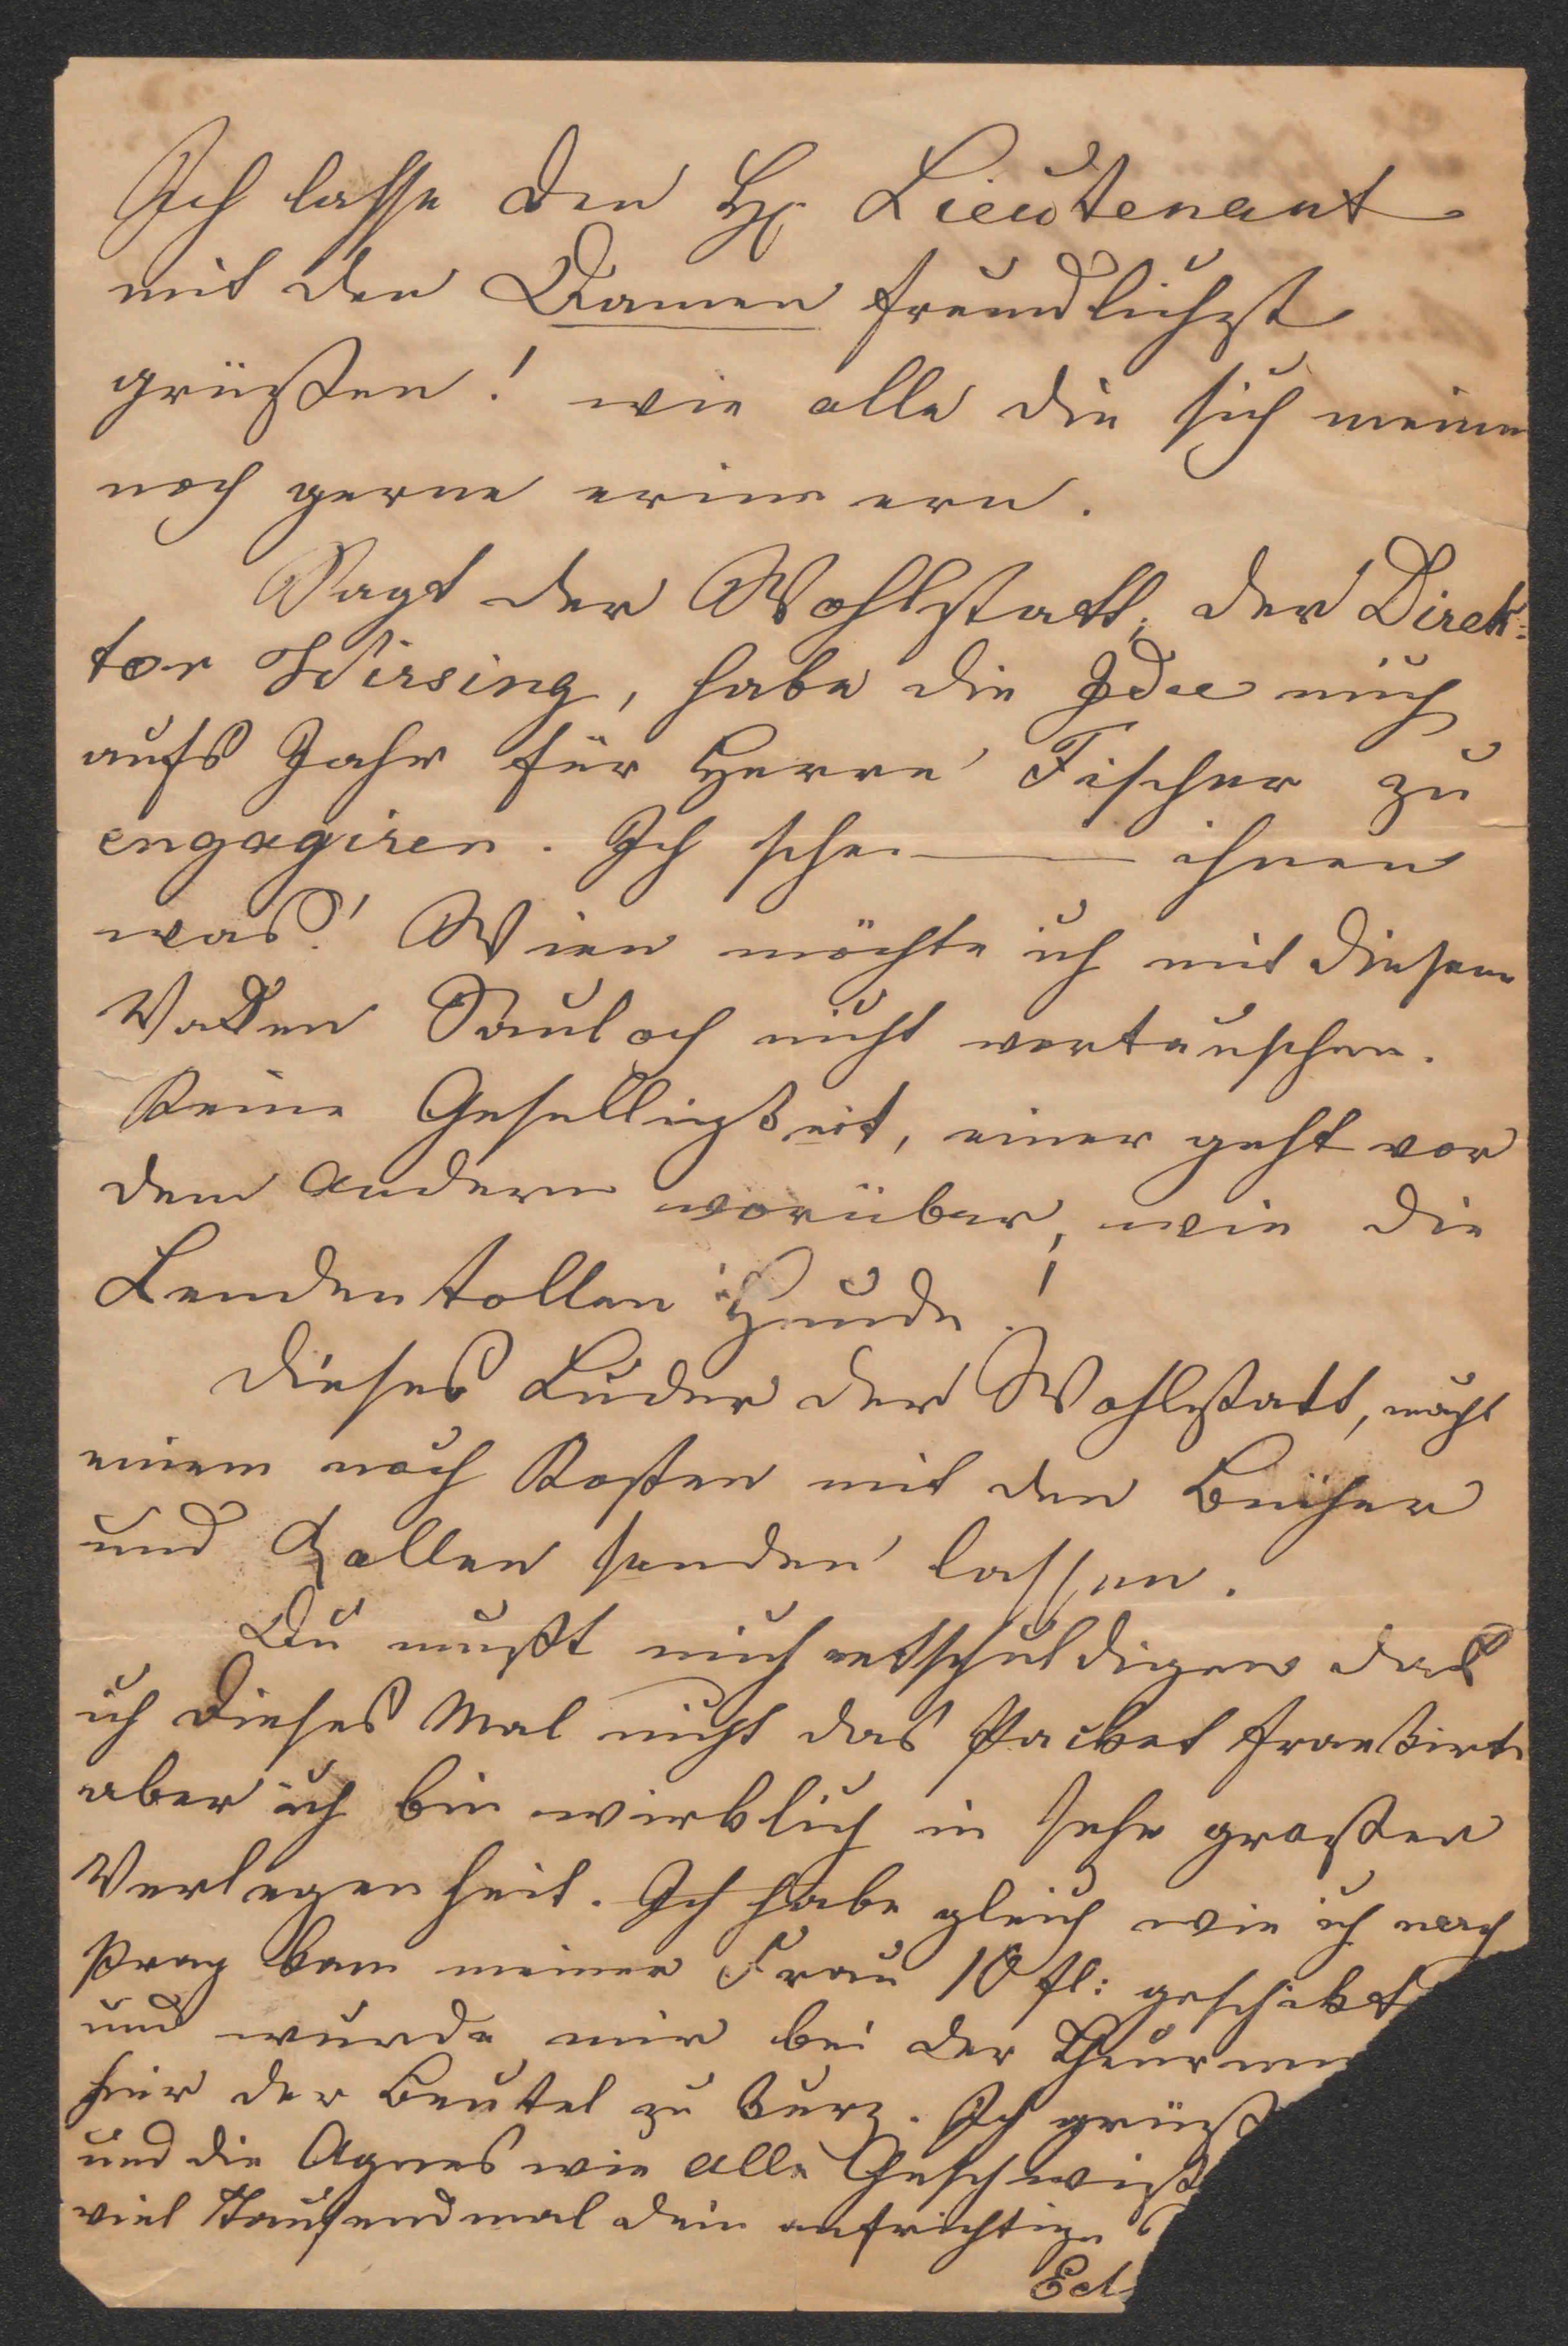 Ich lasse den H. Lieutenant
mit den Damen freundlichst
grüßen! wie alle die sich meiner
noch gerne erinnern.
Sagt der Wohlstatt, der Direk:
tor Wirsing, habe die Idee mich
aufs Jahr für Herrn Fischer zu
engagiren. Ich sche——— ihnen
was! Wien möchte ich mit diesem
Sauloch nicht vertauschen.
Keine Geselligkeit, einer geht vor
dem andern vorüber, wie die
Lendentollen Hunde!
Dieses Luder der Wohlstatt, macht
einem noch Kosten mit den Bücher
und Rollen senden lassen.
Du mußt mich entschuldigen daß
ich dieses Mal nicht das Packet frankirte
aber ich bin wirklich in sehr großer
Verlegenheit. Ich habe gleich wie ich nach
Prag kam meiner Frau 10 fl: geschikt
und wurde mir bei der
hier der Beutel zu kurz. Ich grüß
und die Agnes wie alle Geschwist
viel Tausendmal dein aufrichtige
Ed